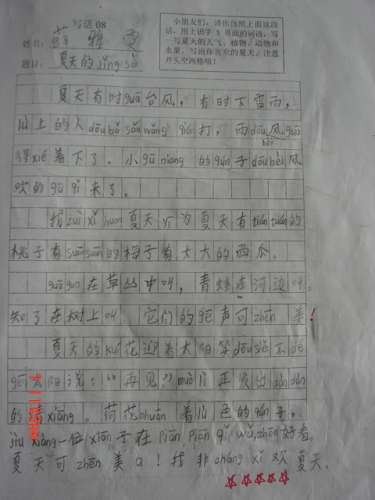 写话 08
姓名: 薛雅文
题目: 夏天的jǐng sè
小朋友们,请你仿照上面这段
话,用上识字3里面的词语,写
一写夏天的天气、植物、动物和
水果,写出你喜欢的夏天。注意
开头空两格哦!
夏天有时guā台风,有时下雷雨,
山上的人dōu bèi sǎn wǎng 打,雨dōu
xié着下了。小gū niang的qún子dōu bèi风
吹的gǔ qǐ来了。
我zuì xǐ huan夏天,yīn为夏天有tián tián的
桃子有suān suān的梅子有大大的西瓜。
guō guo在草丛中叫,青蛙在河边叫。
知了在树上叫,它们的gē声可zhēn美!
夏天的kuí花迎着太阳
说:“再见!”正发出dàn dàn
的xiāng。荷花chuān着色的qún子,
jiù xiàng一位xiān子在piān piān qǐ wǔ,zhēn好看。
夏天可zhēn美a!我非cháng xǐ欢夏天。